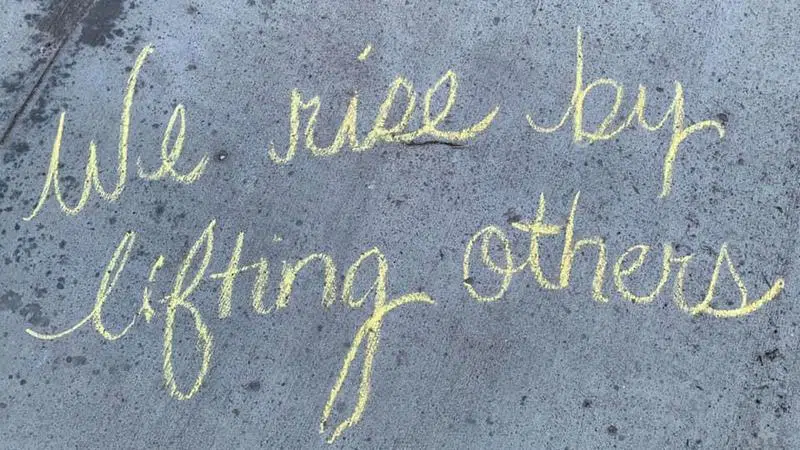 We rise by
lifting others